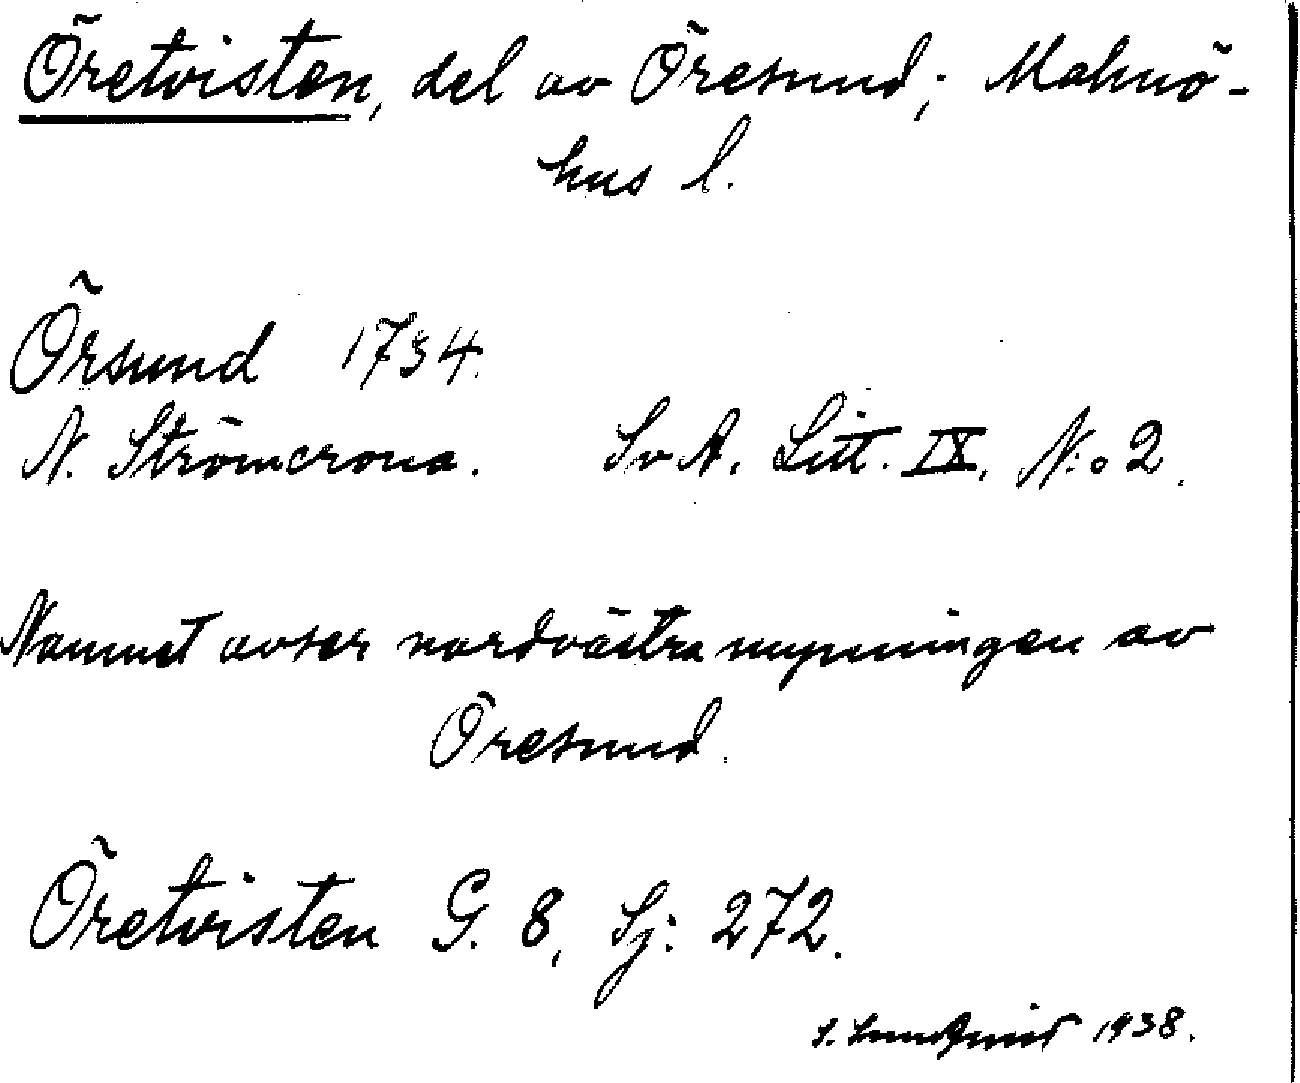 Öretvisten, del av Öresund; Malmö-
hus l.
Örsund 1734.
N. Strömcrona. Sv A. Litt. IX. N:o 2.
Namnet avser nordvästra mynningen av
Öresund.
Öretvisten G. 8, Sj: 272.
S. Lundquist 1938.